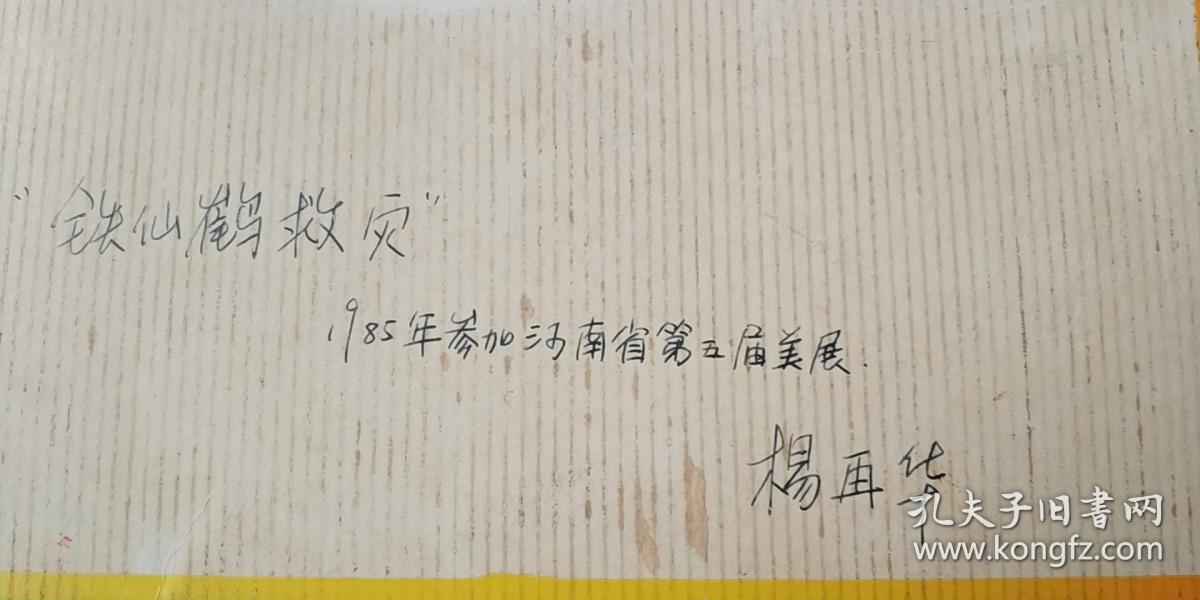 "铁仙鹤救灾"
1985年参加河南省第五届美展.
楊再华
孔夫子旧书网
www.kongfz.com